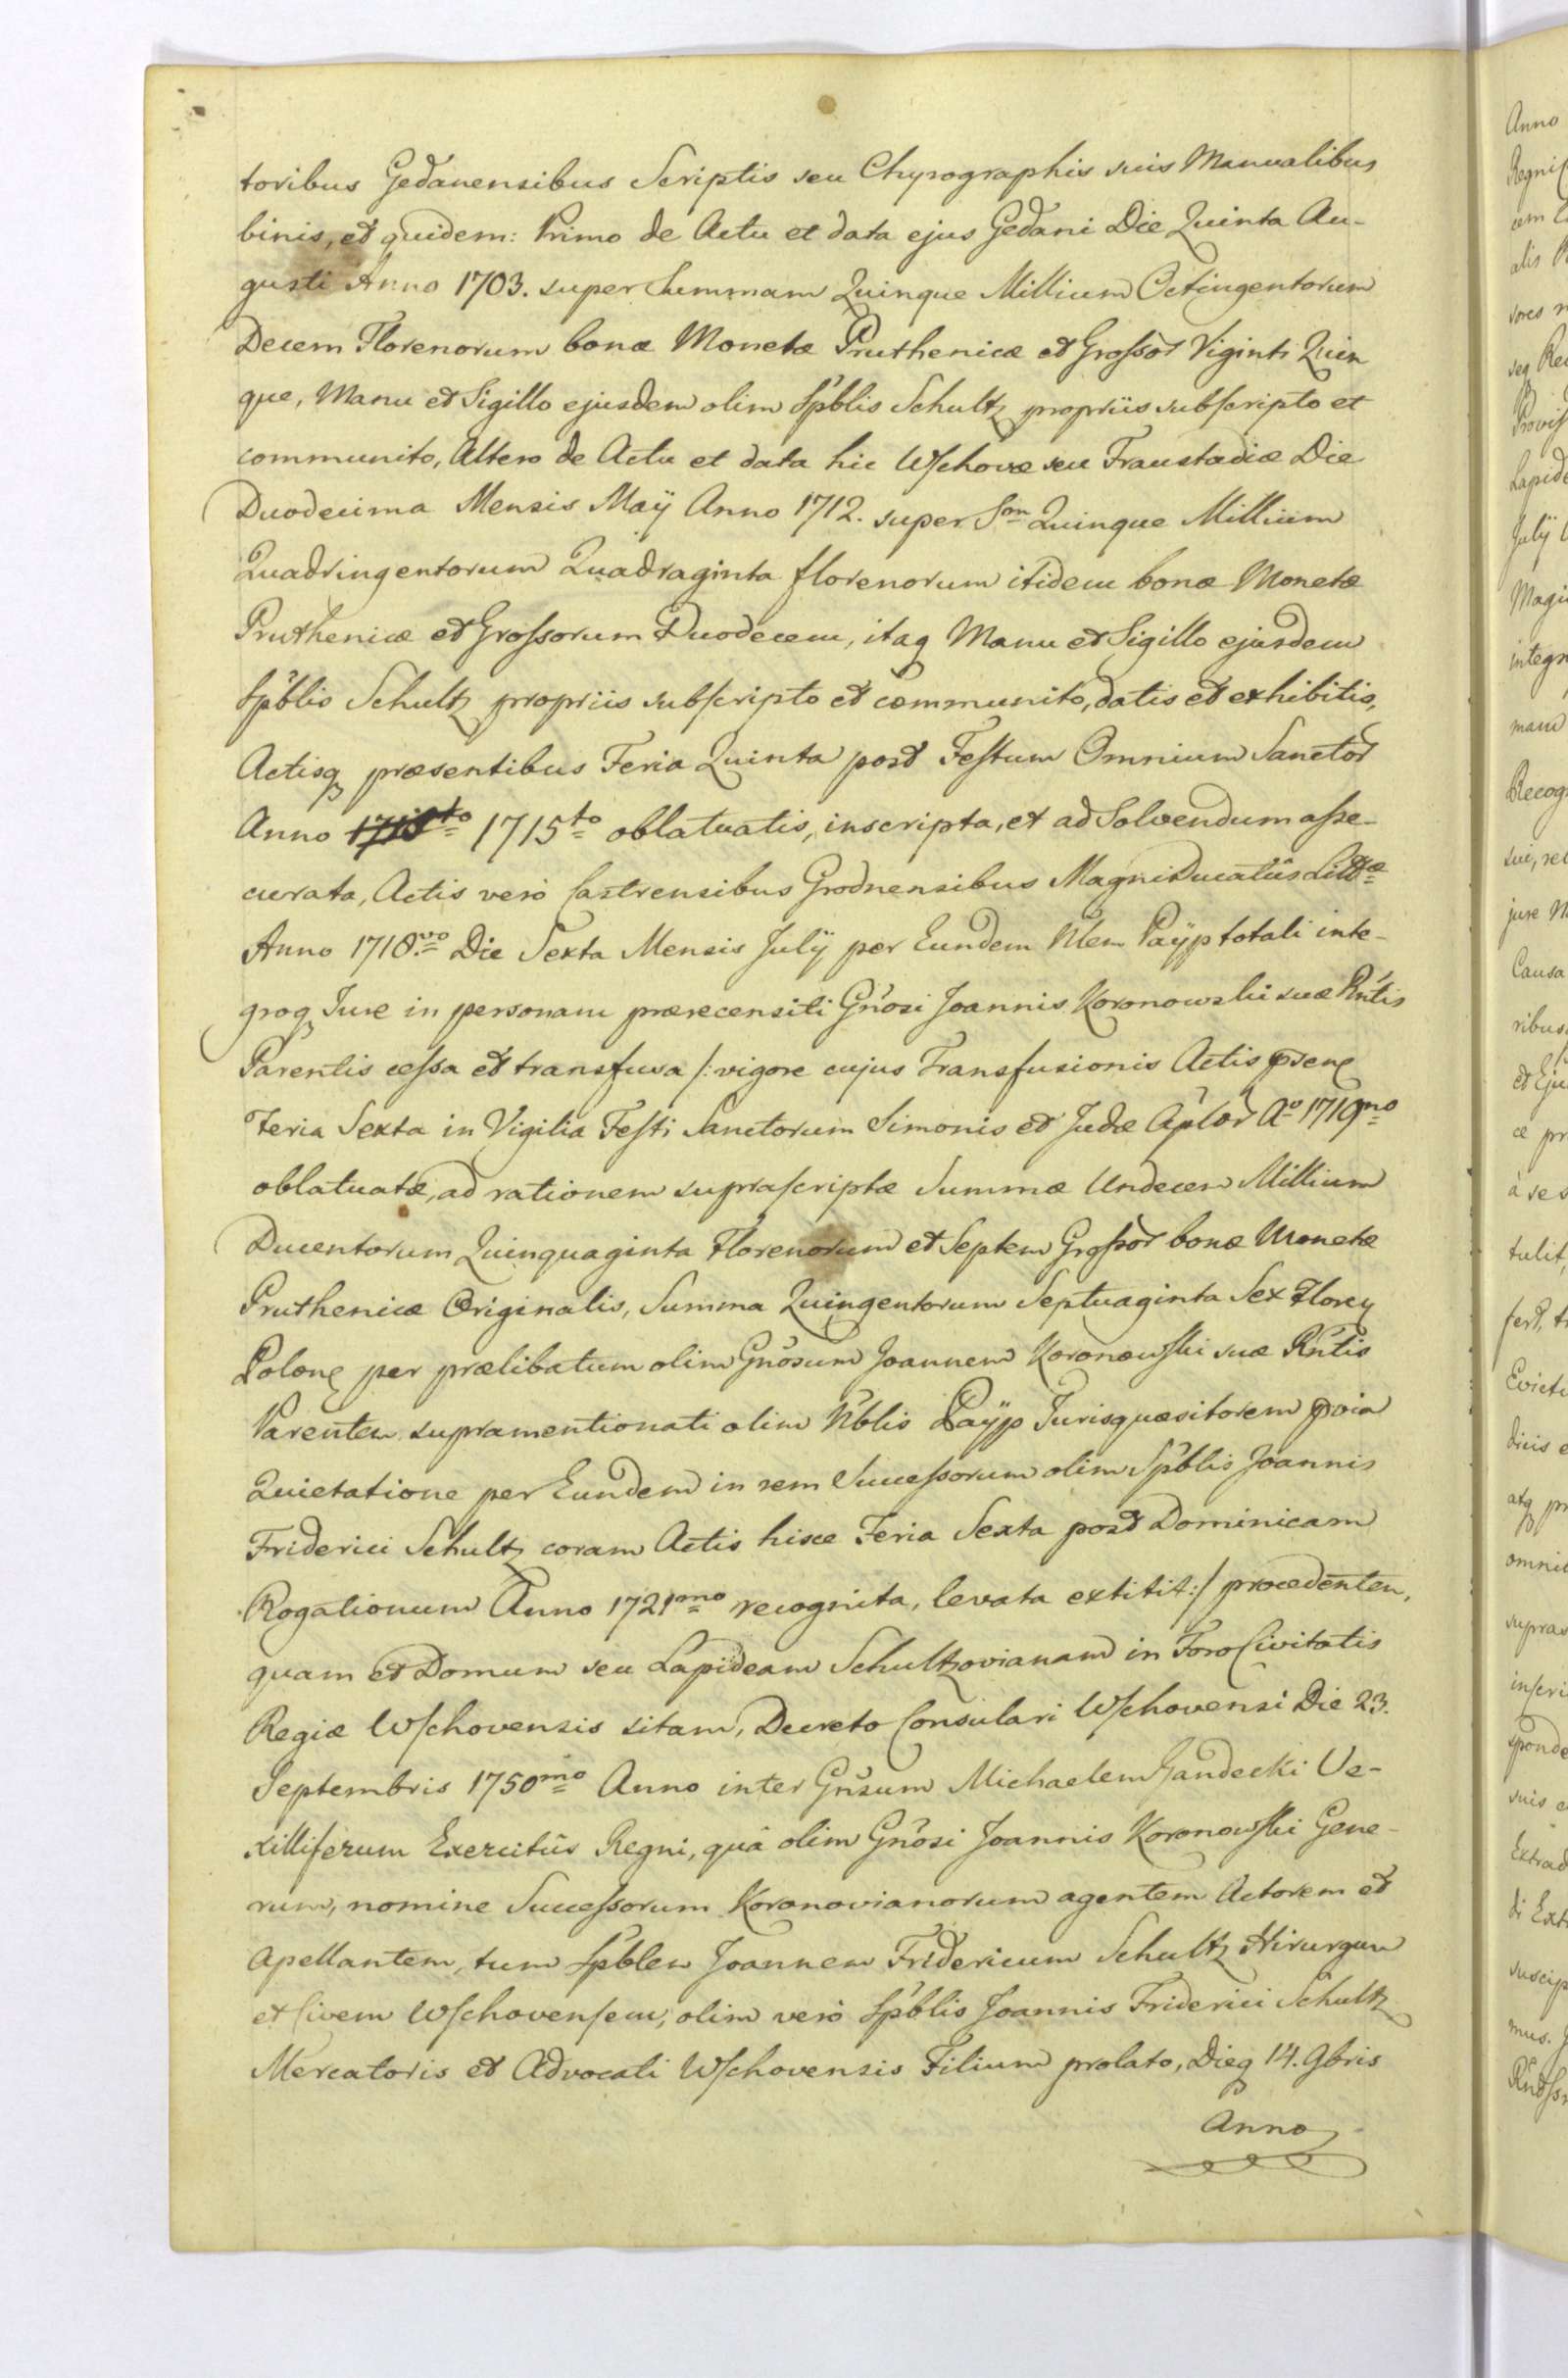 toribus Gedanensibus Scriptis seu Chyrographis suis Manualibus
binis, et quidem: Primo de Actu et data ejus Gedani Die Quinta Au-
gusti Anno 1703. super Summam Quinque Millium Octingentorum
Decem Florenorum bonæ Monetæ Pruthenicæ et Grossor Viginti Quin
que, Manu et Sigillo ejusdem olim Spblis Schultz propriis subscripto et
communito, Altero de Actu et data hic Wschovæ seu Fraustadiæ Die
Duodecima Mensis Maÿ Anno 1712. super Sm̅ Quinque Millium
Quadringentorum Quadraginta florenorum itidem bonæ Monetæ
Pruthenicæ et Grossorum Duodecem, itaq Manu et Sigillo ejusdem
Spblis Schultz propriis subscripto et communito, datis et exhibitis,
Actisq præsentibus Feria Quinta post Festum Omnium Sanctor
Anno 1715to oblatuatis, inscripta, et ad Solvendum asse-
curata, Actis verò Castrensibus Grodnensibus Magni Ducatûs Littæ
Anno 1718vo Die Sexta Mensis Julÿ per Eundem Nlem Paÿp totali inte-
groq Jure in personam præcensiti Gnosi Joannis Koronowski suæ Rntis
Parentis cessa et transfusa /: vigore cujus Transfusionis Actis psen
Feria Sexta in Vigilia Festi Sanctorum Simonis et Judæ Aplor Ao 1719no
oblatuatæ, ad rationem suprascriptæ Summæ Undecem Millium
Ducentorum Quinquaginta Florenorum et Septem Grossor bonæ Monetæ
Pruthenicæ Originalis, Summa Quingentorum Septuaginta Sex Floren
Polon per prælibatum olim Gnosum Joannem Koronowski suæ Rntis
Parentem supramentionati olim Nblis Paÿp Jurisquæsitorem pvia
Quietatione per Eundem in rem Successorum olim Spblis Joannis
Friderici Schultz coram Actis hisce Feria Sexta post Dominicam
Rogationum Anno 1721mo recognita, levata extitit :/ procedentem,
quam et Domum seu Lapideam Schultzovianam in Foro Civitatis
Regiæ Wschovensis sitam, Decreto Consulari Wschovensi Die 23.
Septembris 1750mo Anno inter Gnsum Michaelem Gandecki Ve-
xilliferum Exercitûs Regni, quà olim Gnosi Joannis Koronowski Gene-
rum, nomine Successorum Koronovianorum agentem Actorem et
Apellantem, tum Spblem Joannem Fridericum Schultz Hirurgum
et Civem Wschovensem, olim verò Spblis Joannis Friderici Schultz
Mercatoris et Advocati Wschovensis Filium prolato, Dieq 14. 9bris
Anno